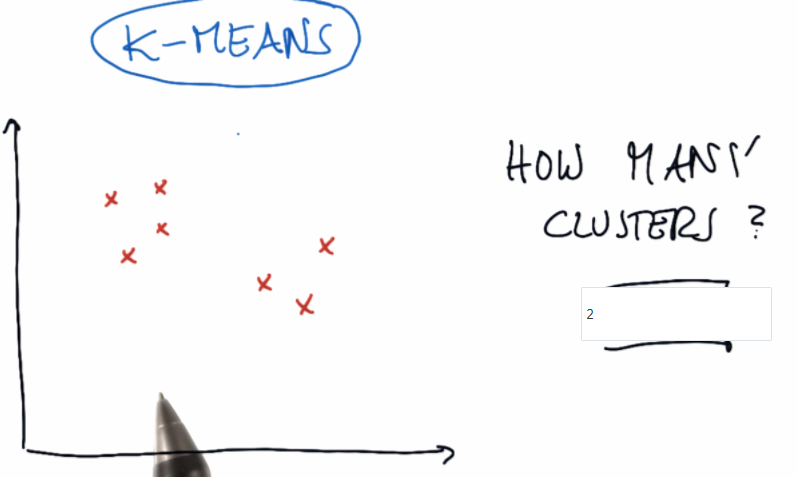 K-MEANS
HOW MANY
CLUSTERS ?
2